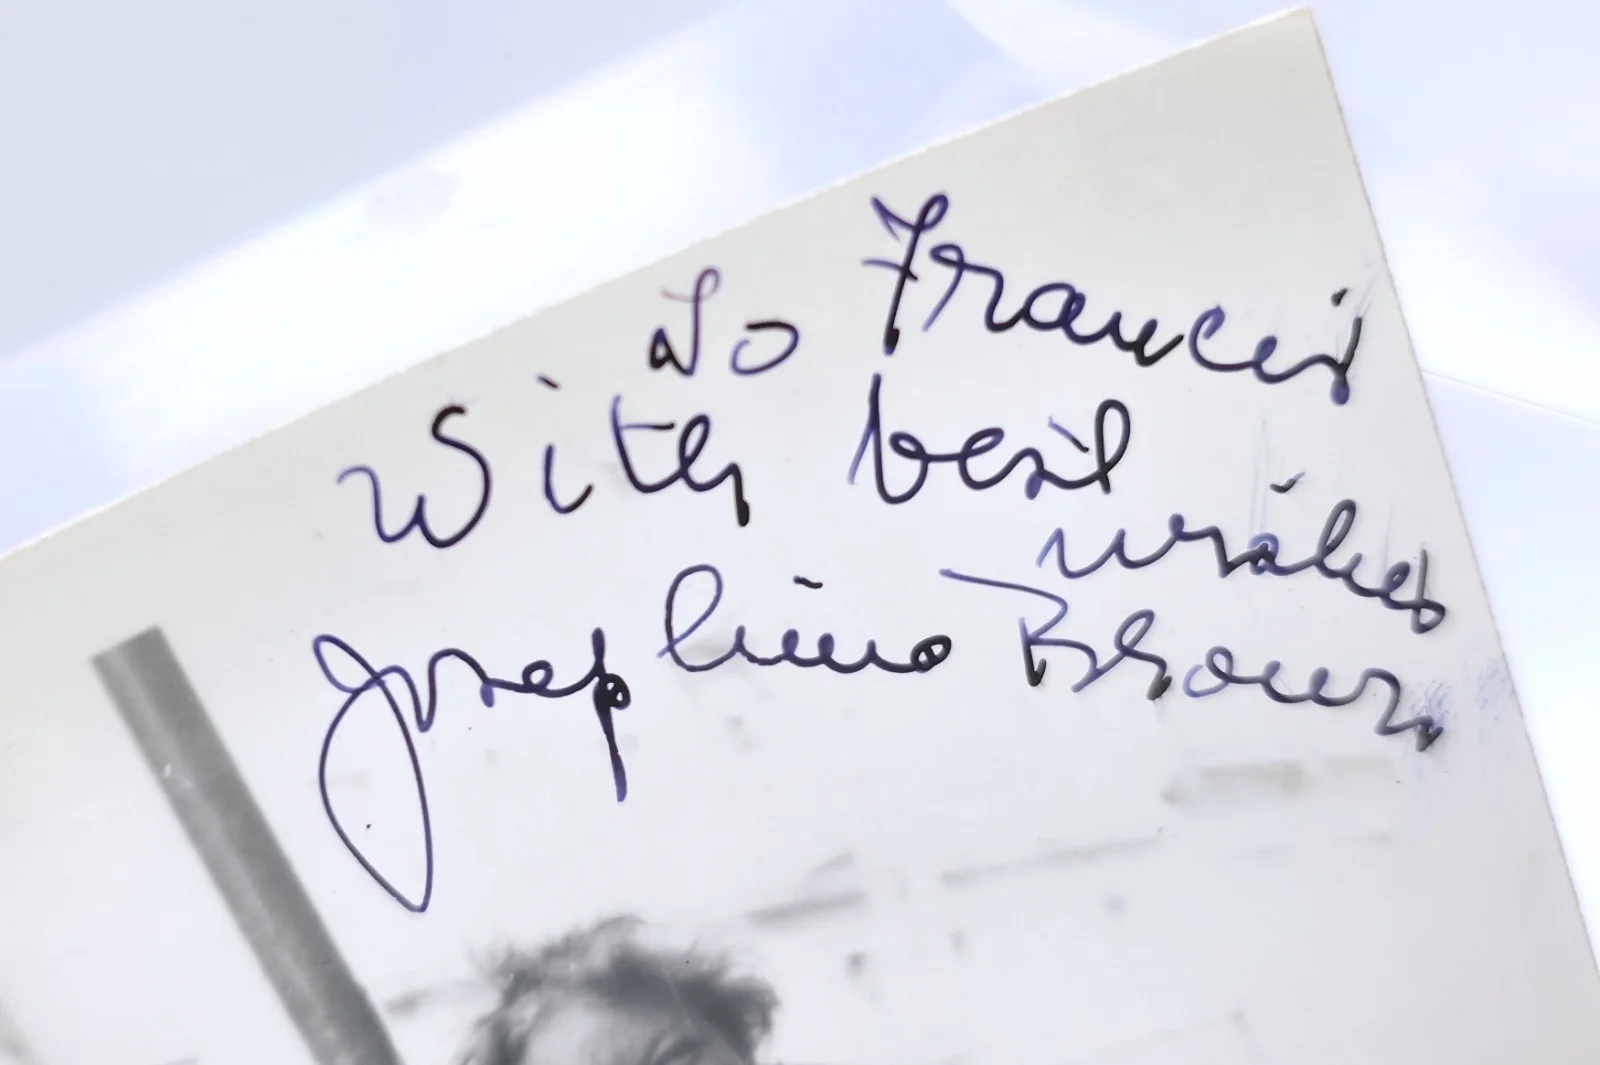 To Francis
With best
wishes
Josephine Brown